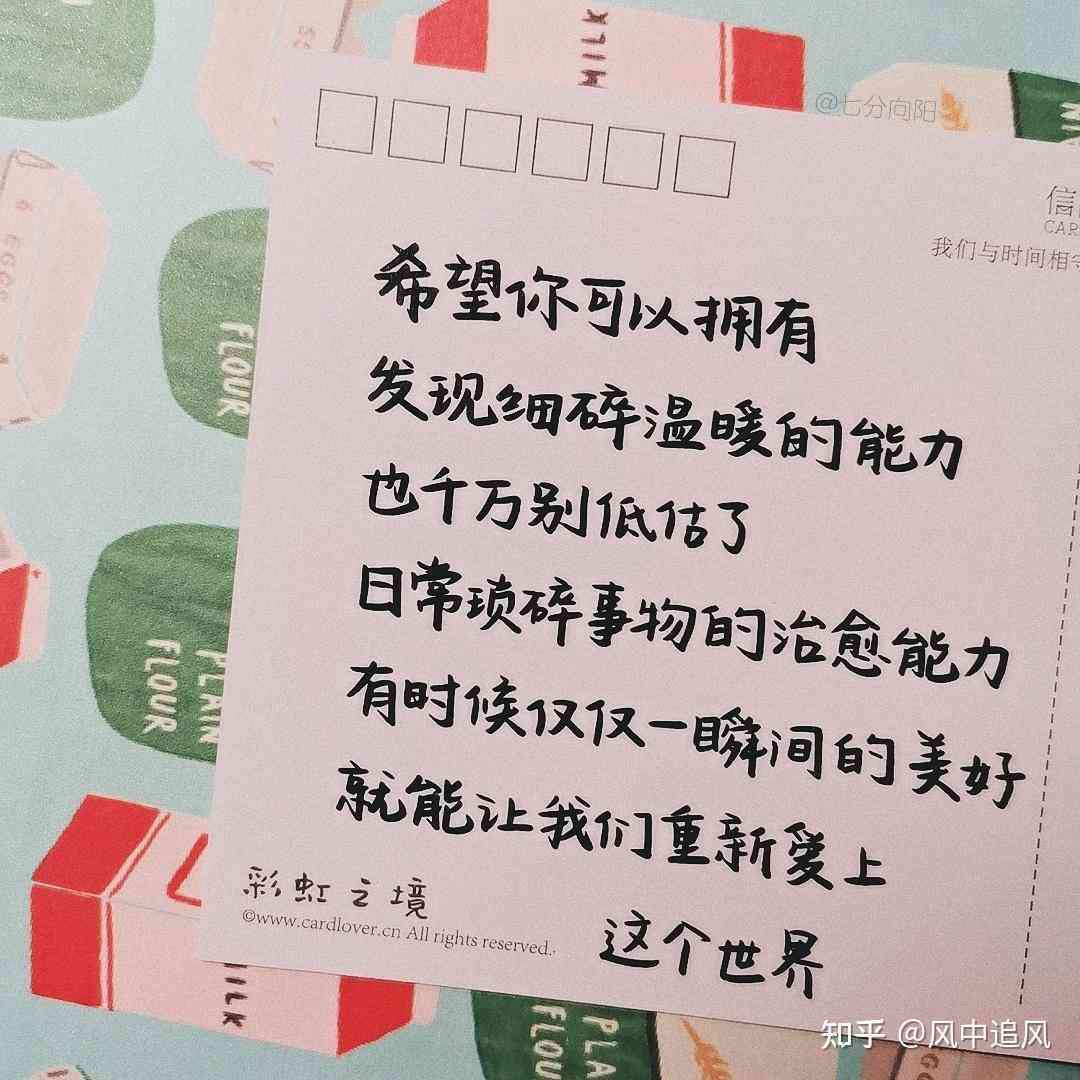 MILK
@七分向阳
信
CAR
我们与时间相守
希望你可以拥有
发现细碎温暖的能力
也千万别低估了
日常琐碎事物的治愈能力
有时候仅仅一瞬间的美好
就能让我们重新爱上
这个世界
彩虹之境
©www.cardlover.cn All rights reserved.
EGGS
FLOUR
PLAIN
FLOUR
MILK
PLA
FLOU
知乎 @风中追风